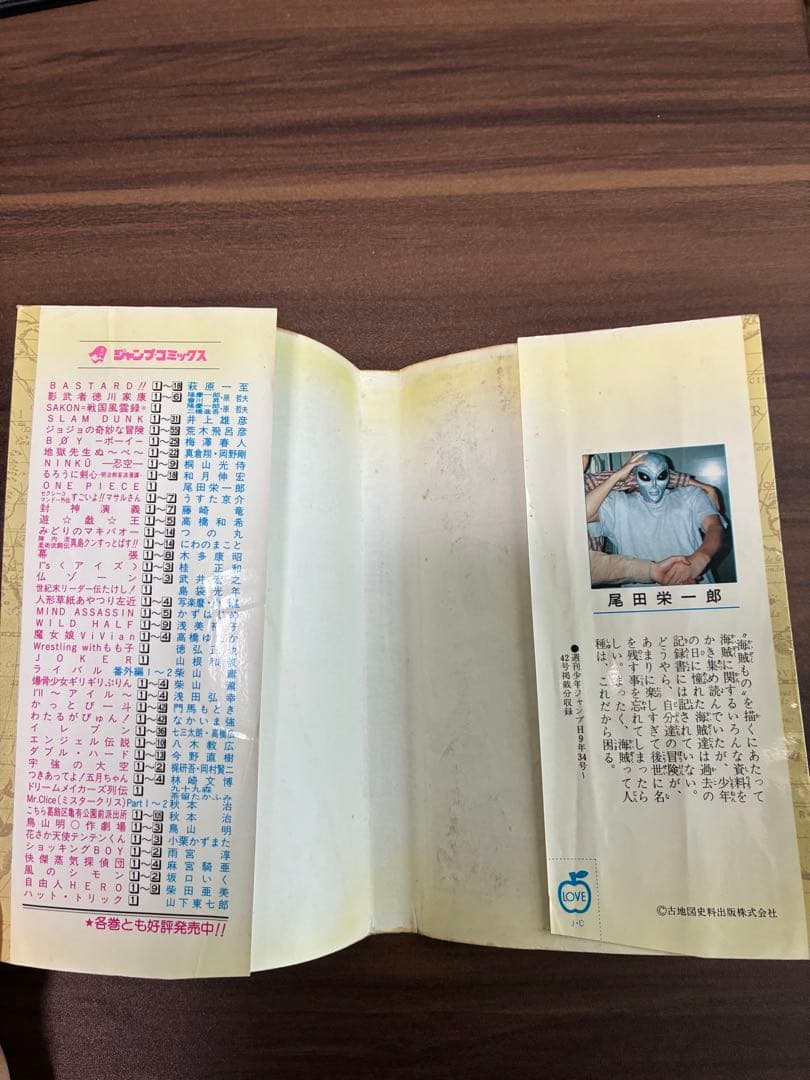 ジャンプ・コミックス
BASTARD!! 1〜18 萩原一至
影武者徳川家康 1〜6 隆慶一郎・原哲夫
SAKON=戦国風雲録= 1 隆慶一郎・原哲夫
SLAM DUNK 1〜31 井上雄彦
ジョジョの奇妙な冒険 荒木飛呂彦
BØY ―ボーイ― 梅澤春人
地獄先生ぬ〜べ〜 1〜22 真倉翔・岡野剛
NINKŪ ―忍空― 1〜9 桐山光侍
るろうに剣心 和月伸宏
ONE PIECE 1 尾田栄一郎
セクシーコマンドー外伝 すごいよ!!マサルさん 1〜7 うすた京介
封神演義 1〜7 藤崎竜
遊☆戯☆王 1〜5 高橋和希
みどりのマキバオー 1〜14 つの丸
陣内流柔術武闘伝 真島クンすっとばす!! 1〜14 にわのまこと
幕張 木多康昭
I"s〈アイズ〉 1〜3 桂正和
仏ゾーン 1〜3 武井宏之
世紀末リーダー伝たけし! 1 島袋光年
人形草紙あやつり左近 1〜4 写楽麿・小畑健
MIND ASSASSIN 1〜5 かずはじめ
WILD HALF 1〜9 浅美裕子
魔女娘ViVian 1〜4 高橋ゆたか
Wrestling withもも子 1 徳弘正也
JOKER 1 山根和俊
ライバル 番外編1〜2 柴山薫
爆骨少女ギリギリぷりん 1〜4 柴山薫
I'll 〜アイル〜 1〜4 浅田弘幸
かっとび一斗 門馬もとき
わたるがぴゅん! なかいま強
イレブン 七三太朗・高橋広
エンジェル伝説 1〜10 八木教広
ダブル・ハード 1〜13 今野直樹
宇強の大空 1〜2 梶研吾・岡村賢二
つきあってよ!五月ちゃん 1〜4 林崎文博
ドリームメイカーズ列伝 1 九十九森 茶留たかふみ
Mr.Clice(ミスタークリス) Part1〜2 秋本治
こちら葛飾区亀有公園前派出所 秋本治
鳥山明○作劇場 1〜3 鳥山明
花さか天使テンテンくん 1〜3 小栗かずまた
ショッキングBOY 1〜2 雨宮淳
快傑蒸気探偵団 1〜4 麻宮騎亜
風のシモン 1〜2 坂口いく
自由人HERO 1〜9 柴田亜美
ハット・トリック 1 山下東七郎
★各巻とも好評発売中!!
尾田栄一郎
“海賊もの”を描くにあたって
海賊に関するいろんな資料を
かき集め読んでいたが、少年
の日に憧れた海賊達は過去の
記録書には記されていない。
どうやら、自分達の冒険が、
あまりに楽しすぎて後世に名
を残す事を忘れてしまったら
しい。まったく、海賊って人
種は、これだから困る。
●週刊少年ジャンプH9年34号〜
42号掲載分収録
LOVE
J・C
©古地図史料出版株式会社